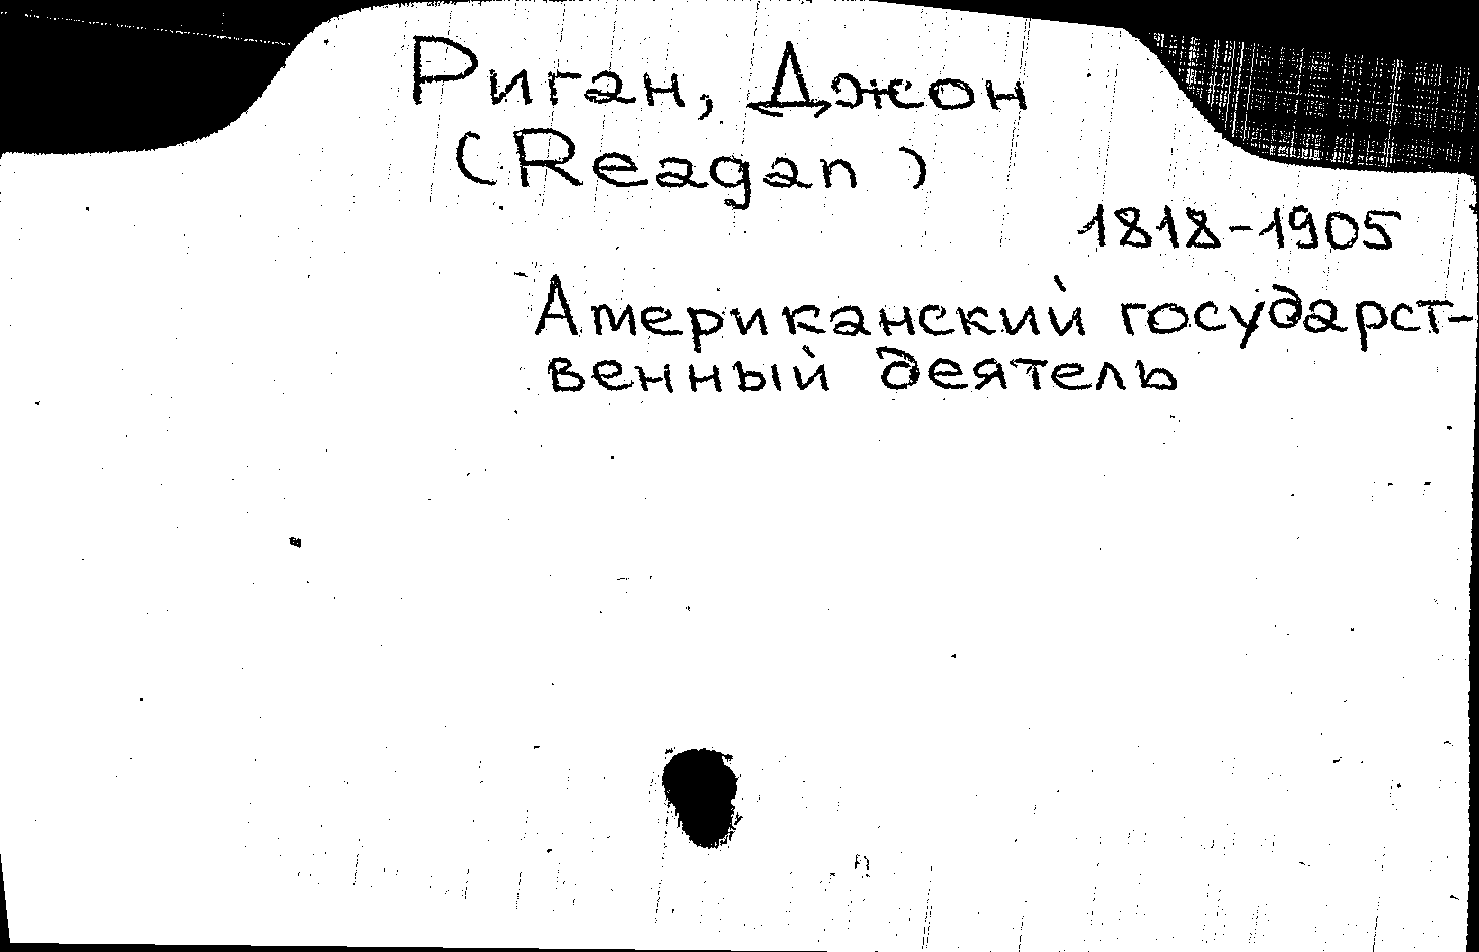 Риган, Джон
(Reagan)
1818-1905
Американский государст-
венный деятель